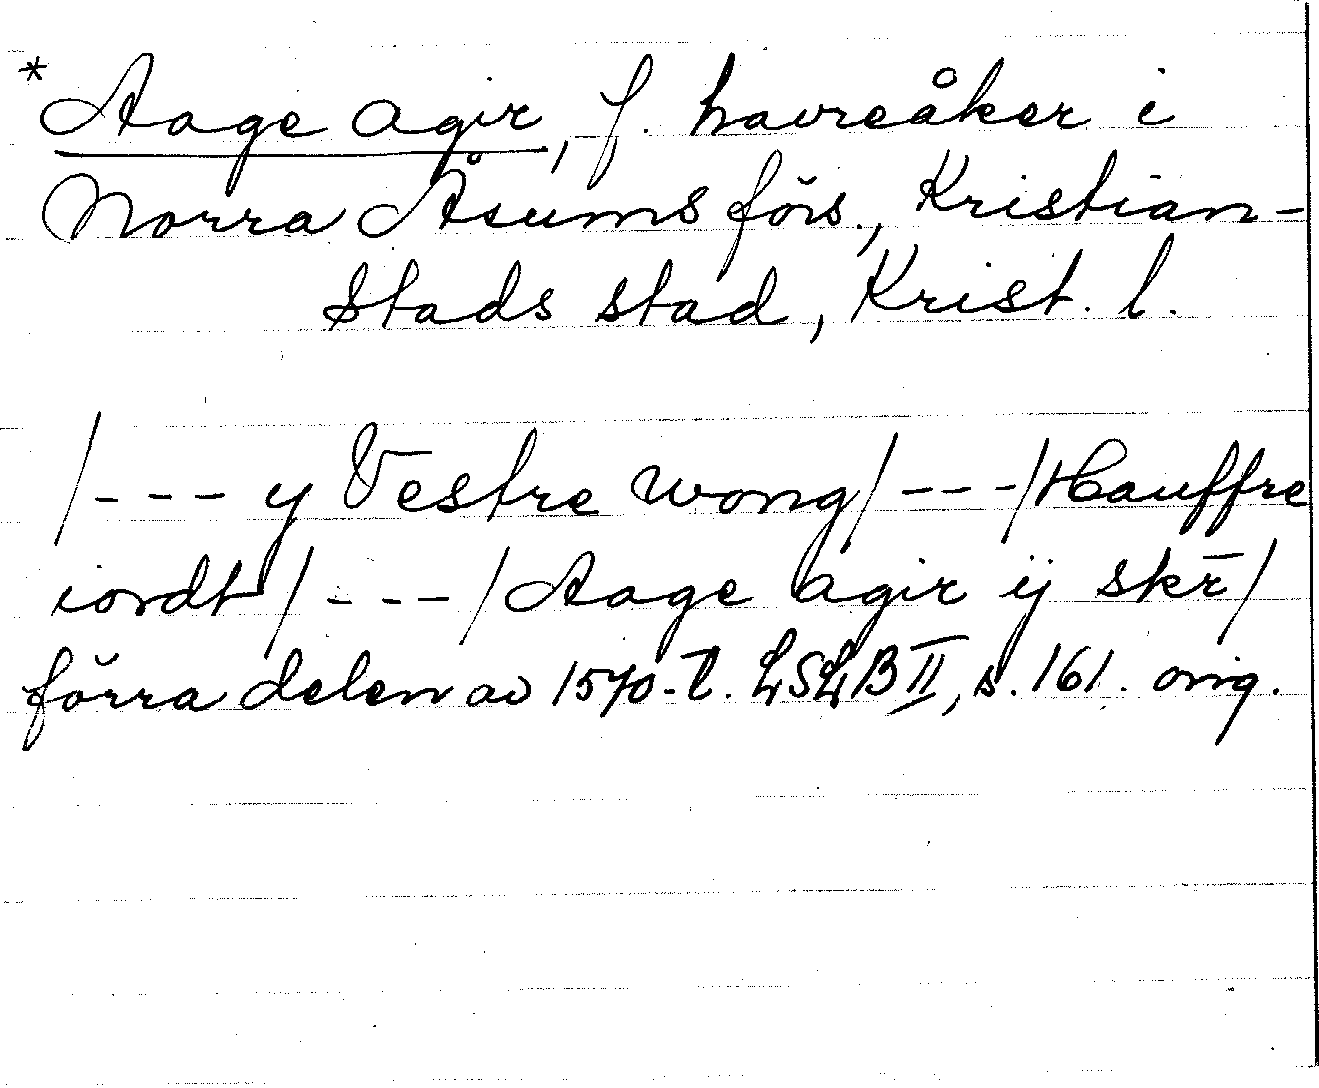 *Aage agir, f. havreåker i
Norra Åsums förs., Kristian-
stads stad, Krist. l.
/--- y Vestre wong/---/Hauffre
iordt/---/Aage agir ij skr̄/
förra delen av 1570-t. LSLB II, s. 161. orig.